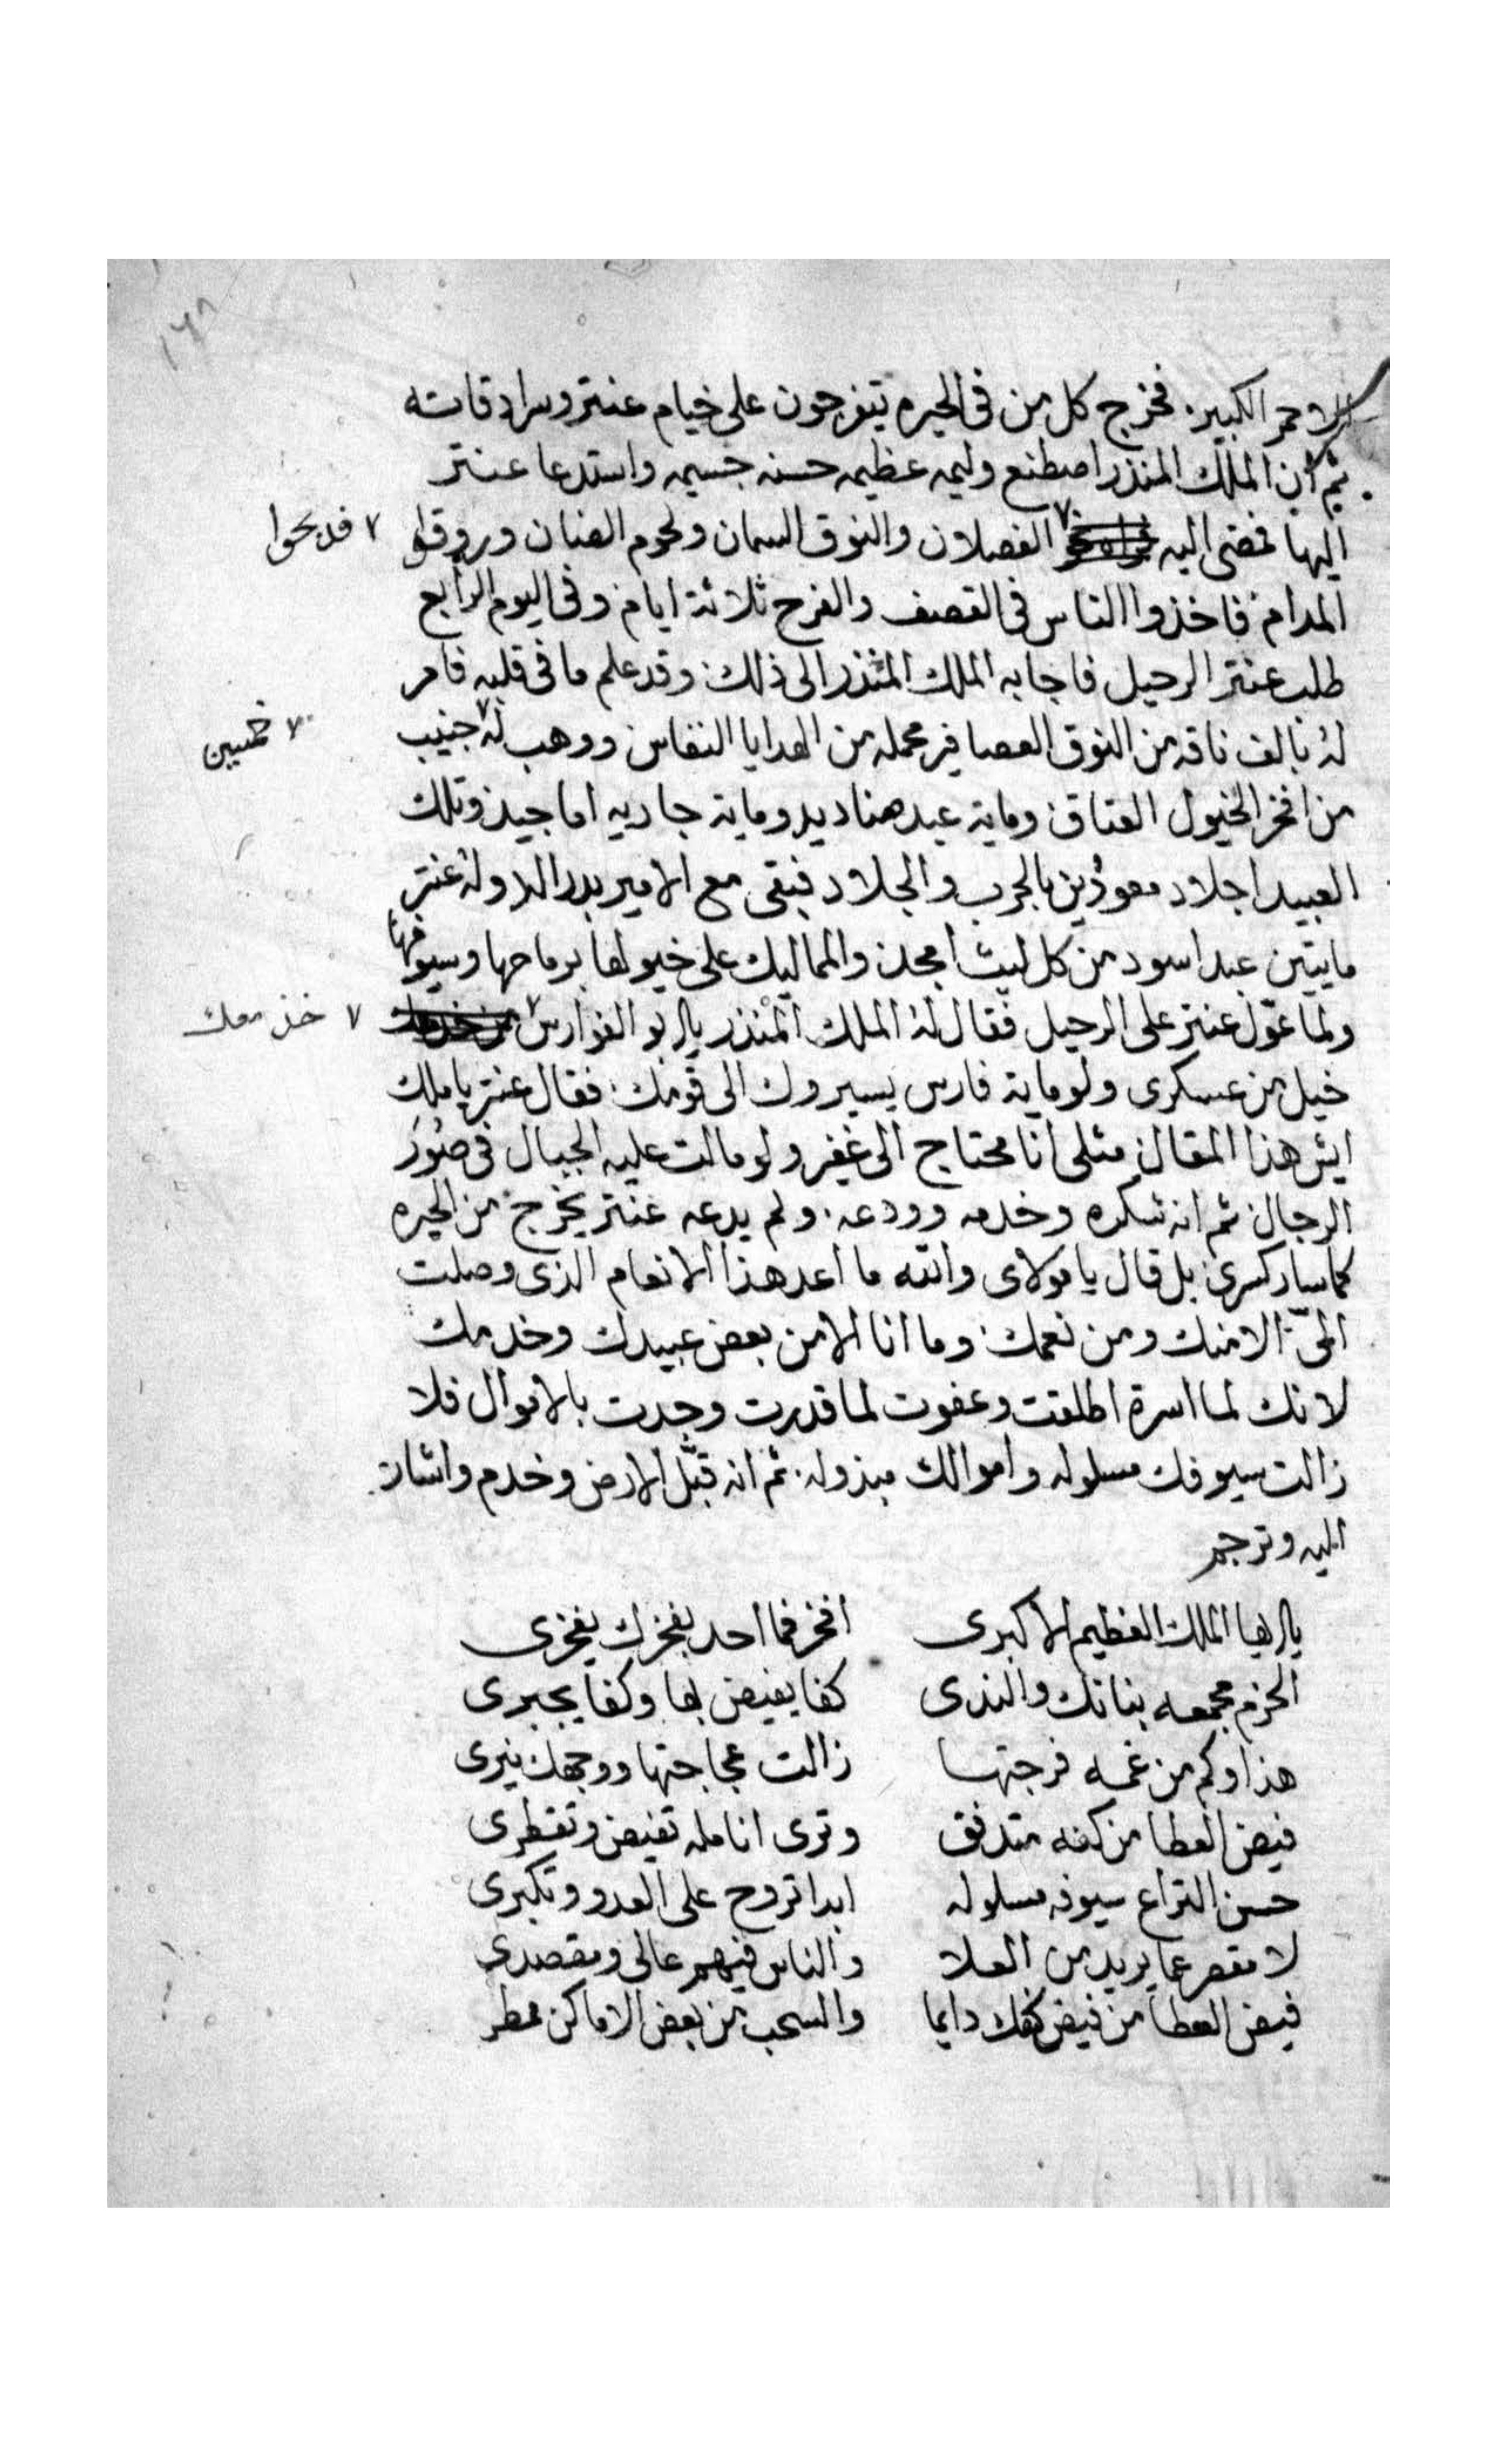 ١٦٨
الاحمر الكبير. فخرج كل من في الحيره يتفرجون على خيام عنتر وسرادقاته
ثم ان الملك المنذر اصطنع وليمه عظيمه حسنه جسيمه واستدعا عنتر
اليها فمضى اليه الفصلان والنوق السمان ولحوم الضان وروقوا
فدبحوا
المدام فاخذوا الناس في القصف والفرح ثلاثة ايام وفي اليوم الرابع
طلب عنتر الرحيل فاجابه الملك المنذر الى ذلك وقد علم ما في قلبه فامر
له بالف ناقه من النوق العصافير محمله من الهدايا النفاس ووهب له جنيب
خمسين
من افخر الخيول العتاق وماية عبد صناديد وماية جاريه اماجيد وتلك
العبيد اجلاد معودين بالحرب والجلاد فبقى مع الامير بدر الدوله عنتر
مايتين عبد اسود من كل ليث امجد والمماليك على خيولها برماحها وسيوفها
ولما عوّل عنتر على الرحيل فقال له الملك المنذر يا ابو الفوارس
خذ معك
خيل من عسكرى ولو ماية فارس يسيروك الى قومك فقال عنتر يا ملك
ايش هذا المقال مثلى انا محتاج الى غفير ولو مالت عليه الجبال في صور
الرجال ثم انه شكره وخدمه وودعه. ولم يدعه عنتر يخرج من الحيره
كما سار كسرى بل قال يا مولاى والله ما اعد هذا الانعام الذى وصلت
الىّ الا منك ومن نعمك وما انا الا من بعض عبيدك وخدمك
لانك لما اسرة اطلقت وعفوت لما قدرت وجدت بالاموال فلا
زالت سيوفك مسلوله واموالك مبذوله. ثم انه قبّل الارض وخدم واشار
اليه وترجم
يا ايها الملك العظيم الاكبرى افخر فما احد بفخرك يفخرى
الحزم مجمعه بنانك والندى كفا يفيض بها وكفا يجبرى
هذا وكم من غمه فرجتها زالت عجاجتها ووجهك نيرى
فيض العطا من كفه متدفق وترى انامله تفيض وتقطرى
حسن سيوفه مسلوله ابدا تروح على العدو وتكبرى
لا مقصر عما يريد من العلا والناس فيهم عالى ومقصدى
فيض العطا من فيض كفك دايما والسحب من بعض الاماكن ممطر